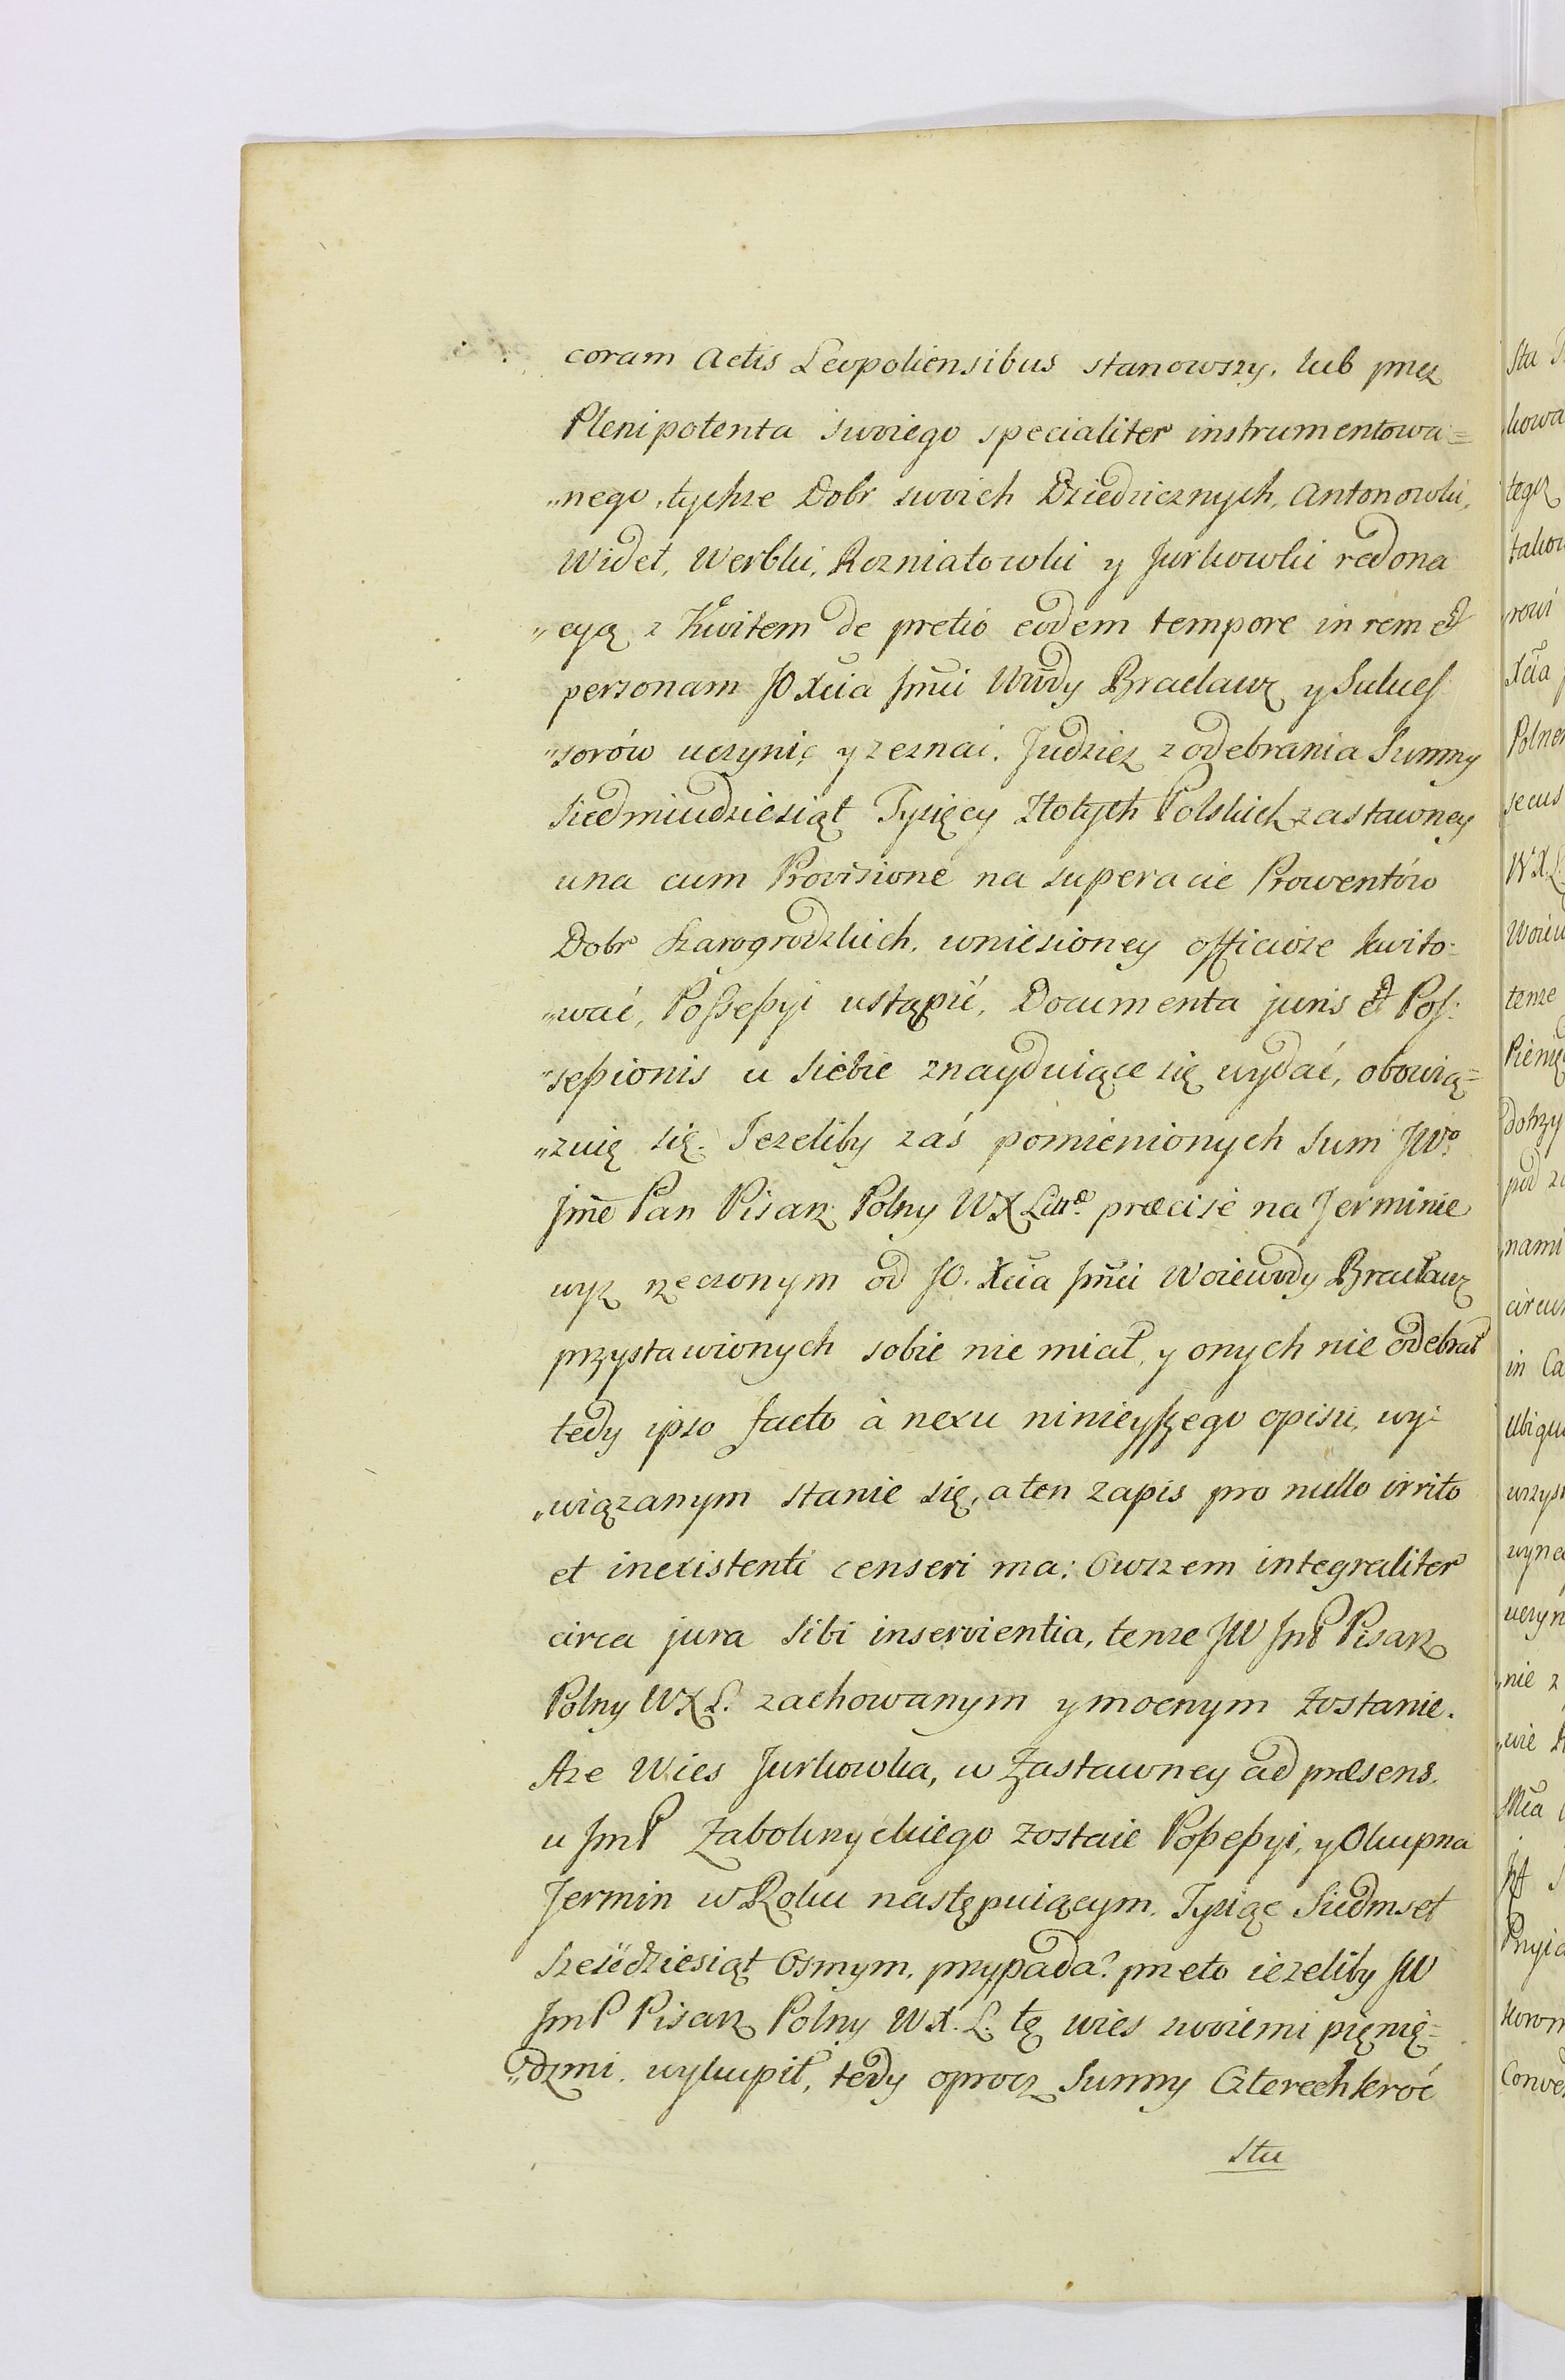 coram Actis Leopoliensibus stanowszy, lub przez
Plenipotenta swoiego specialiter instrumentowa=
„nego, tychze Dobr swoich Dziedzicznych, Antonowki,
Widet, Werbki, Rozniatowki y Jurkowki redona
„cyą z Kwitem de pretio eodem tempore in rem et
personam JO Xcia Jmci Wwdy Bracławz y Sukces
„sorów uczynić y zeznać. Judziez z odebrania Summy
Siedmiudziesiąt Tysięcy Złotych Polskich zastawney
una cum Provisione na superacie Prowentów
Dobr Szarogrodzkich, wniesioney officiose kwito-
„wać, Possessyi ustąpić, Documenta juris et Pos:
„sessionis u Siebie znayduiące się wydać, obowią=
„zuię się. Jezeliby zaś pomienionych Sum JWo
Jme Pan Pisarz Polny WX Litte. præcise na Terminie
wyz rzeczonym od JO. Xcia Jmci Woiewody Bracławz
przystawionych sobie nie miał, y onych nie odebrał
tedy ipso facto à nexu ninieyszego opisu, wy-
„wiązanym stanie się, a ten zapis pro nullo irrito
et inexistenti censeri ma: Owszem integraliter
circa jura Sibi inservientia, tenze JW JmP Pisarz
Polny WXL. zachowanym y mocnym zostanie.
Aze Wies Jurkowka, w Zastawney ad præsens,
u JmP Zabokrzyckiego zostaie Possessyi, y Okupna
Termin w Roku następuiącym, Tysiąc Siedmset
Sześćdziesiąt Osmym, przypada? przeto iezeliby JW
JmP Pisarz Polny W.X.L. tę wies swoiemi pienię=
„dzmi, wykupił, tedy oprocz Summy Czterechkroć
Stu